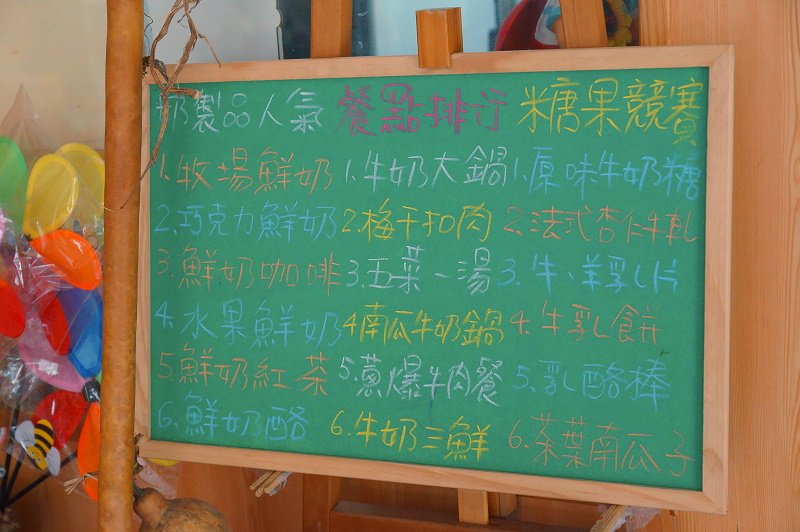 奶製品人氣 餐點排行 糖果競賽
1.牧場鮮奶 1.牛奶大鍋 1.原味牛奶糖
2.巧克力鮮奶 2.梅干扣肉 2.法式杏仁牛軋
3.鮮奶咖啡 3.五菜一湯 3.牛、羊乳片
4.水果鮮奶 4南瓜牛奶鍋 4.牛乳餅
5.鮮奶紅茶 5.蔥爆牛肉餐 5.乳酪棒
6.鮮奶酪 6.牛奶三鮮 6.茶葉南瓜子